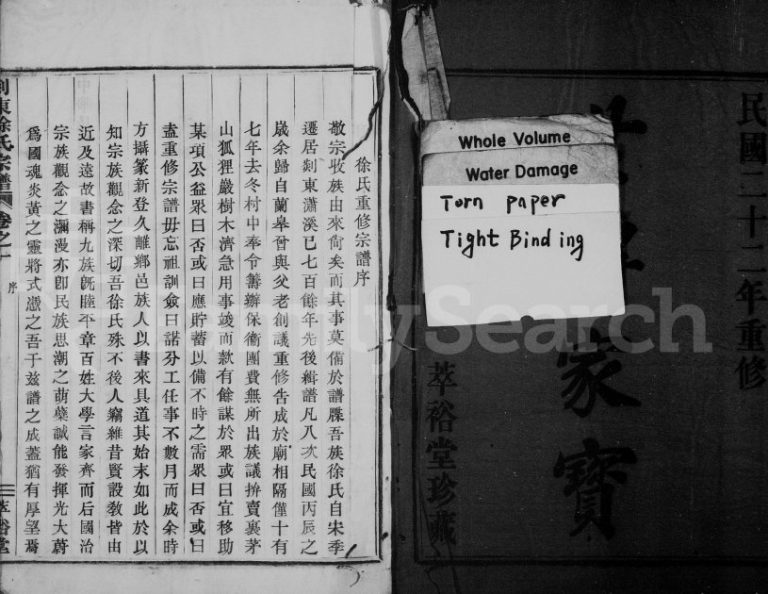 民國二十二年重修
家寶
萃裕堂珍藏
Whole Volume
Water Damage
Torn paper
Tight Binding
徐氏重修宗譜序
敬宗收族由來尙矣而其事莫備於譜牒吾族徐氏自宋季
遷居剡東瀟溪已七百餘年先後輯譜凡八次民國丙辰之
歲余歸自蘭皋曾與父老創議重修吿成於廟相隔僅十有
七年去冬村中奉令籌辦保衞團費無所出族議拚賣裏茅
山狐狸巖樹木濟急用事竣而款有餘謀於眾或曰宜移助
某項公益眾曰否或曰應貯蓄以備不時之需眾曰否或曰
盍重修宗譜毋忘祖訓僉曰諾分工任事不數月而成余時
方攝篆新登久離鄉邑族人以書來具道其始末如此於以
知宗族觀念之深切吾徐氏殊不後人竊維昔賢設敎皆由
近及遠故書稱九族旣睦平章百姓大學言家齊而后國治
宗族觀念之瀰漫亦卽民族思潮之萌蘗誠能發揮光大蔚
爲國魂炎黃之靈將式憑之吾于兹譜之成蓋猶有厚望焉
剡東徐氏宗譜 卷之一
序
萃裕堂
SearchSearch